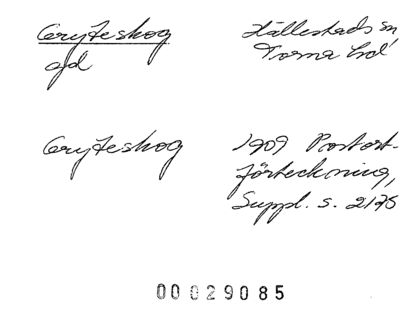 Gryteskog
Hällestads sn,
afd
Torna hd
Gryteskog
1909 Postort-
förteckning,
Suppl. s. 2175
00029085